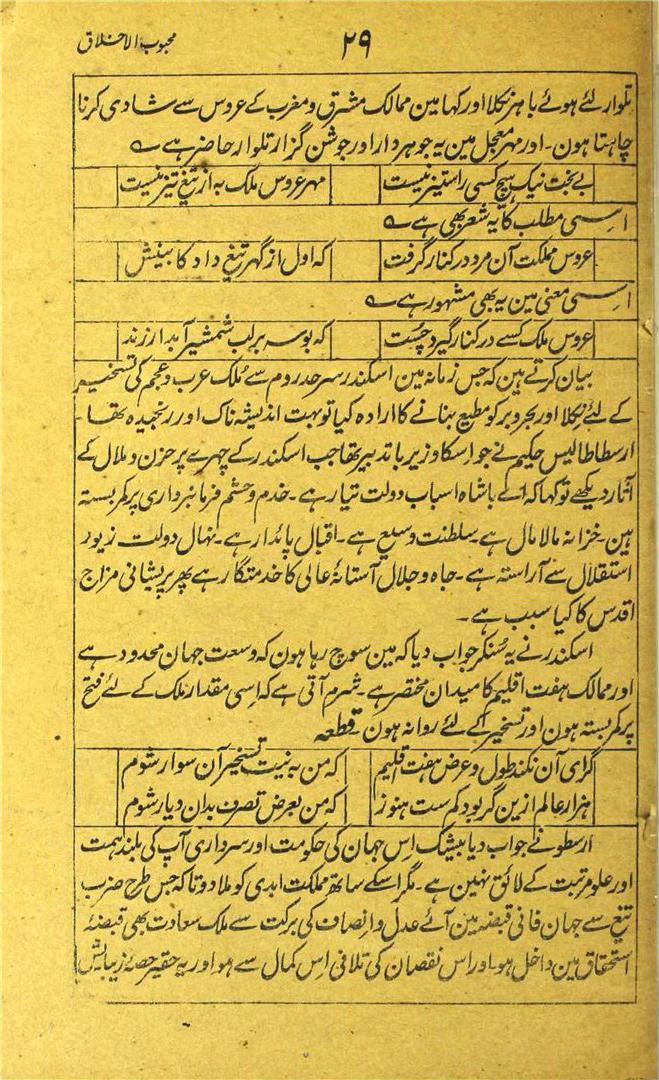 محبوب الاخلاق
۲۹
تلوار لئے ہوئے باہر نکلا اور کہا مین ممالک مشرق و مغرب کے عروس سے شادی کرنا
چاہتا ہون۔ اور مہر معجل مین یہ جوہردار اور جوشن گزار تلوار حاضر ہے ؎
بے بخت نیک ہیچ کسی راستیز نیست مہر عروس ملک بہ از تیغ تیز نیست
اسی مطلب کا یہ شعر بھی ہے ؎
عروس مملکت آن مرد در کنار گرفت کہ اول از گہر تیغ داد کابینش
اسی معنی مین یہ بھی مشہور ہے ؎
عروس ملک کسے در کنار گیرد چست کہ بوسہ بر لب شمشیر آبدار زند
بیان کرتے ہین کہ جس زمانہ مین اسکندر سرحد روم سے ملک عرب و عجم کی تسخیر
کے لئے نکلا اور بحر و بر کو مطیع بنانے کا ارادہ کیا تو بہت اندیشہ ناک اور رنجیدہ تھا۔
ارسطاطالیس حکیم نے جو اسکا وزیر با تدبیر تھا جب اسکندر کے چہرے پر حزن و ملال کے
آثار دیکھے تو کہا کہ اے بادشاہ اسباب دولت تیار ہے۔ خدم و حشم فرمانبرداری پر کمر بستہ
ہین۔ خزانہ مالا مال ہے۔ سلطنت وسیع ہے۔ اقبال پائدار ہے۔ نہال دولت زیور
استقلال سے آراستہ ہے۔ جاہ و جلال آستانۂ عالی کا خدمتگار ہے پھر پریشانی مزاج
اقدس کا کیا سبب ہے۔
اسکندر نے یہ سنکر جواب دیا کہ مین سوچ رہا ہون کہ وسعت جہان محدود ہے
اور ممالک ہفت اقلیم کا میدان مختصر ہے۔ شرم آتی ہے کہ اسی مقدار ملک کے لئے فتح
پر کمر بستہ ہون اور تسخیر کے لئے روانہ ہون۔ قطعہ
کرای آن نکند طول و عرض ہفت اقلیم کہ من بہ نیت تسخیر آن سوار شوم
ہزار عالم ازین گر بود کم ست ہنوز کہ من بعرض تصرف بدان دیار شوم
ارسطو نے جواب دیا بیشک اس جہان کی حکومت اور سرداری آپ کی بلند ہمت
اور علو مرتبت کے لائق نہین ہے۔ مگر اسکے ساتھ مملکت ابدی کو ملا دو تاکہ جس طرح ضرب
تیغ سے جہان فانی قبضہ مین آئے عدل و انصاف کی برکت سے ملک سعادت بھی قبضۂ
استحقاق مین داخل ہو۔ اور اس نقصان کی تلافی اس کمال سے ہو اور یہ حقیر حصہ زیبایش